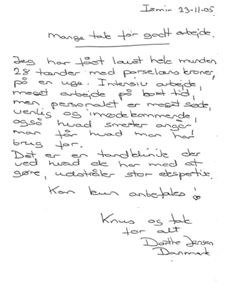 Izmir 23-11-05
mange tak for godt arbejde.
Jeg har fået lavet hele munden
28 tænder med porselans kroner,
på en uge. Intensiv arbejde,
meget arbejde på kort tid,
men, personalet er meget søde,
venlig og imødekommende,
også hvad smerter angår,
man får hvad man har
brug for.
Det er en tandklinik der
ved hvad de har med at
gøre, udstråler stor ekspertise.
Kan kun anbefales!
Knus og tak
for alt
Dorthe Jensen
Danmark